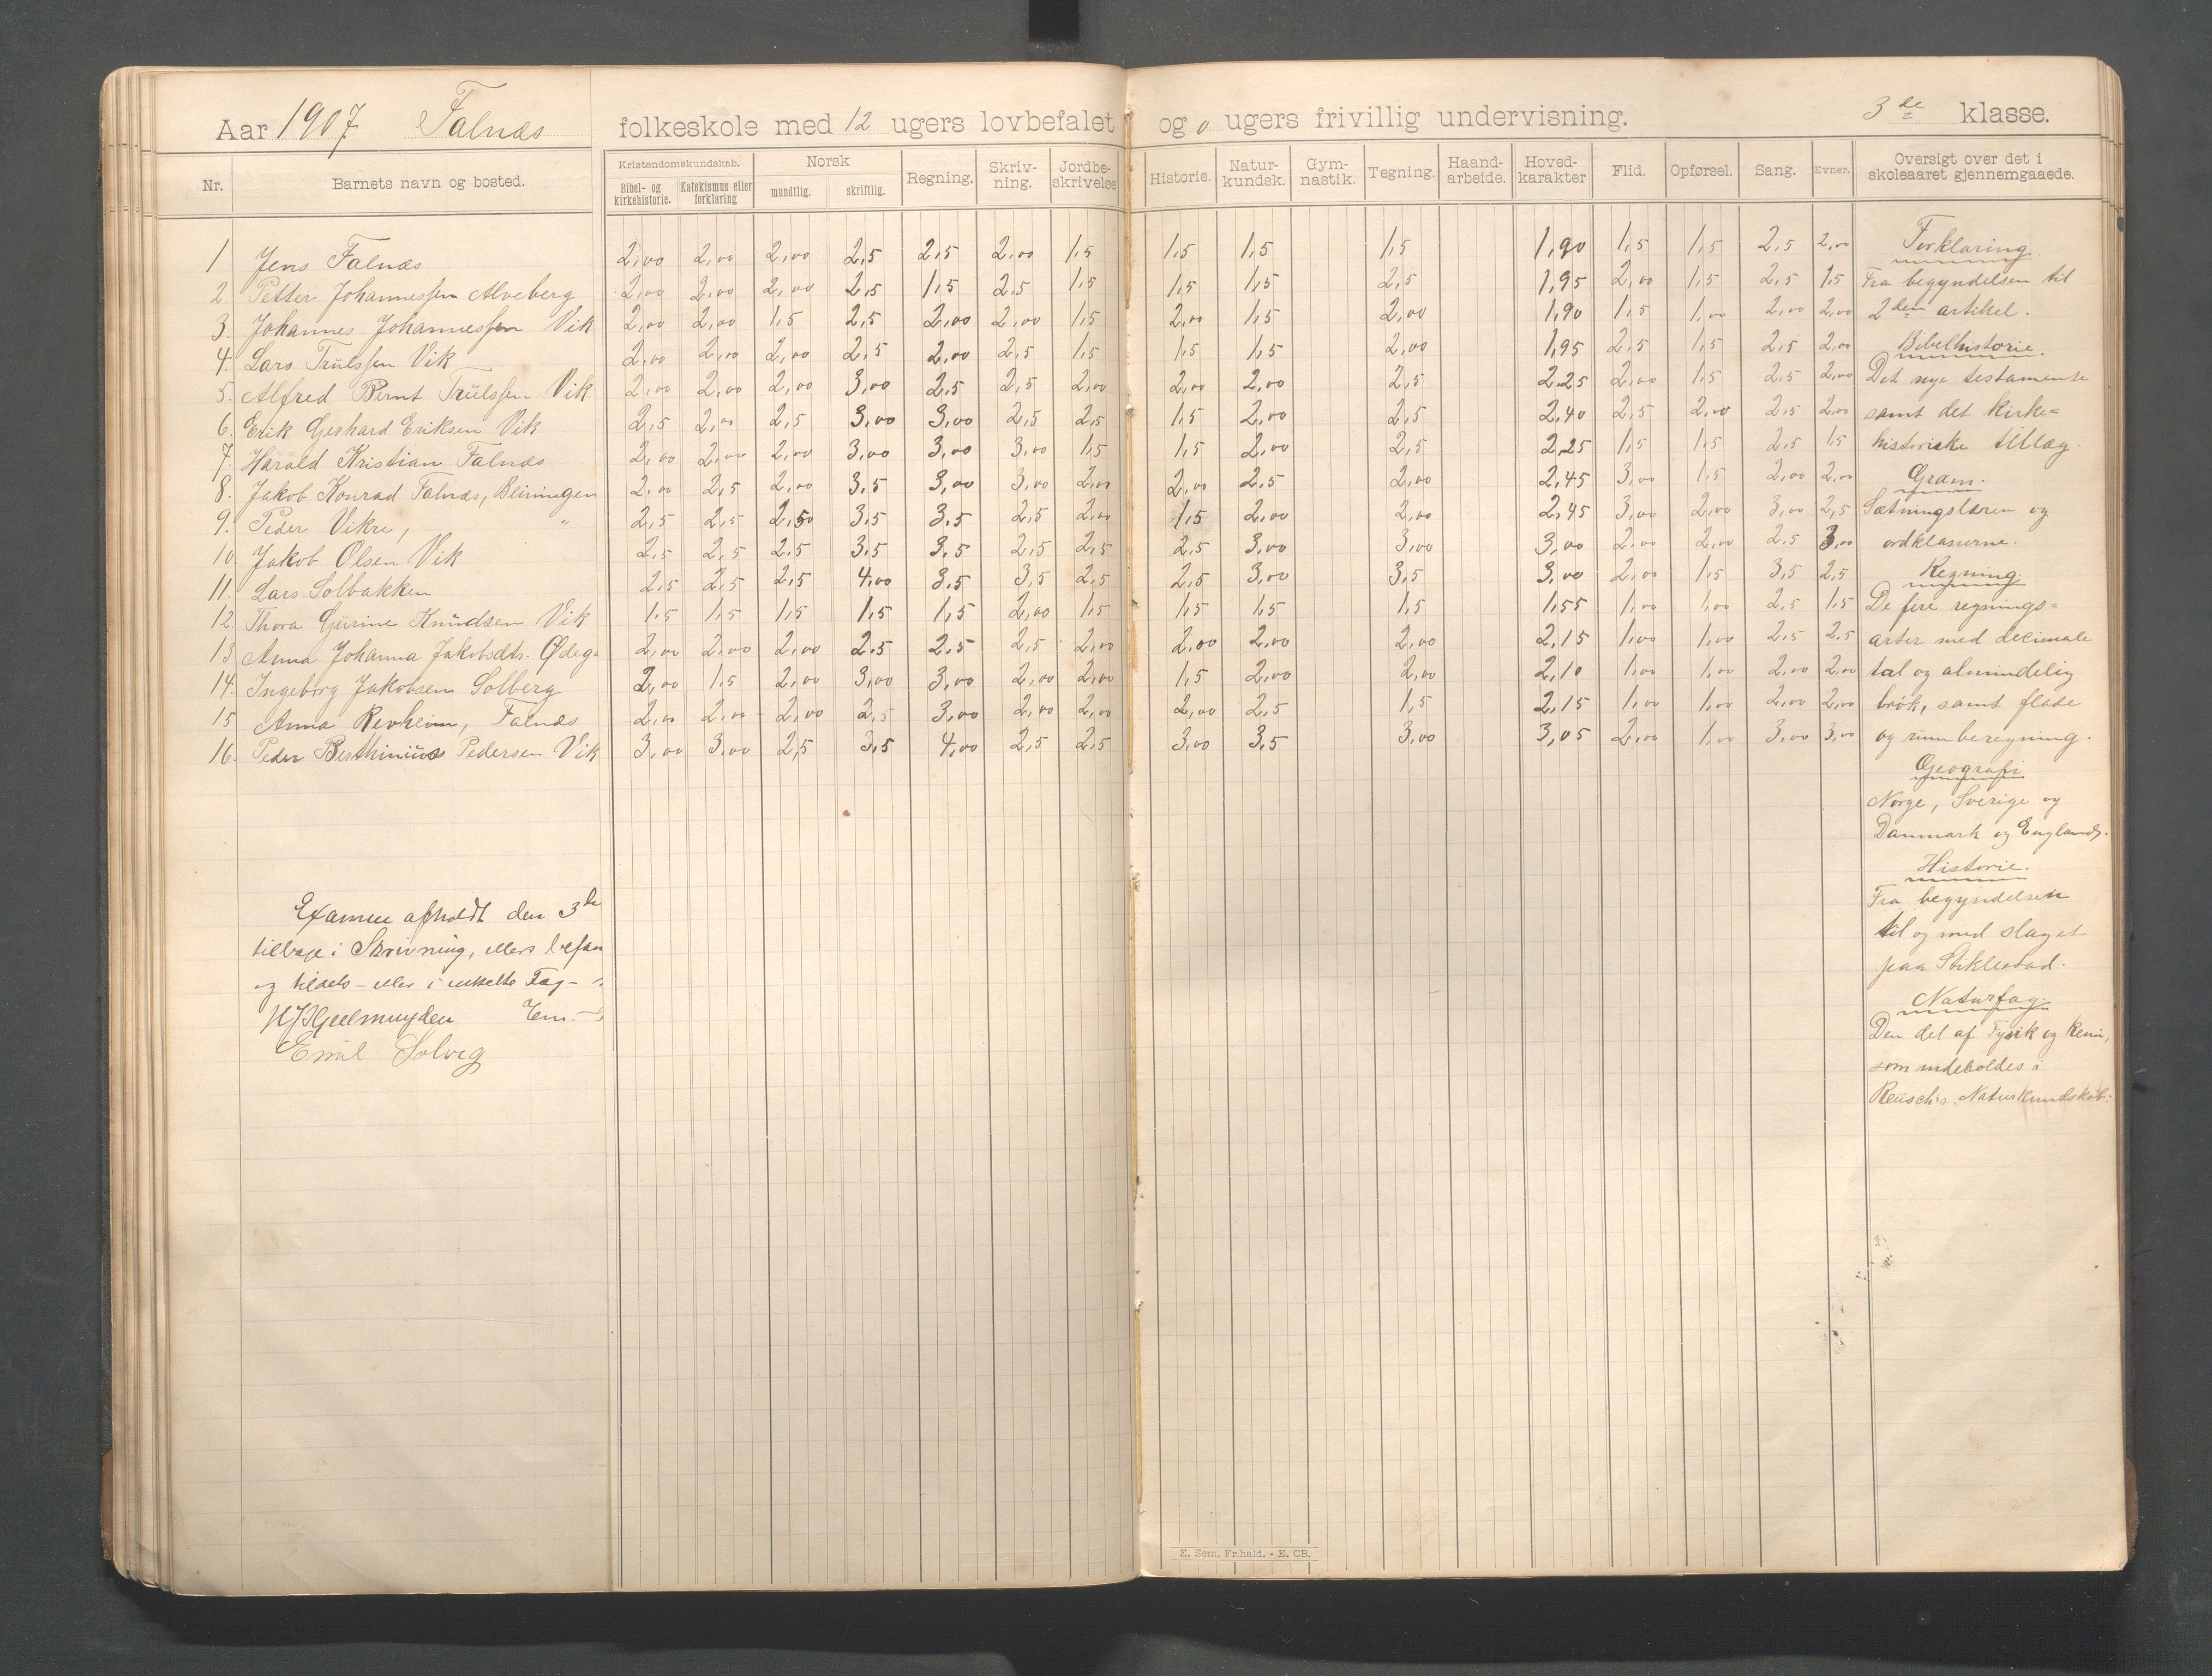 Aar 1907 Falnæs folkeskole med 12 ugers lovbefalet og 0 ugers frivillig undervisning. 3die klasse.
Nr. Barnets navn og bosted. Kristendomskundskab. Bibel- og kirkehistorie. Katekismus eller forklaring Norsk mundtlig. skriftlig. Regning. Skriv-ning. Jordbe-skrivelse Historie. Natur-kundsk. Gym-nastik. Tegning. Haand-arbeide. Hoved-karakter Flid. Opførsel. Sang. Evner. Oversigt over det i skoleaaret gjennemgaaede.
1 Jens Falnæs 2,00 2,00 2,00 2,5 2,5 2,00 1,5 1,5 1,5 1,5 1,90 1,5 1,5 2,5 2,00
2. Petter Johannessen Alveberg 2,00 2,00 2,00 2,5 1,5 2,5 1,5 1,5 1,5 2,5 1,95 2,00 1,5 2,5 1,5
3. Johannes Johannessen Vik 2,00 2,00 1,5 2,5 2,00 2,00 1,5 2,00 1,5 2,00 1,90 1,5 1,00 2,00 2,00
4. Lars Trulssen Vik 2,00 2,00 2,00 2,5 2,00 2,5 1,5 1,5 1,5 2,00 1,95 2,5 1,5 2,5 2,00
5. Alfred Bernt Trulssen Vik 2,00 2,00 2,00 3,00 2,5 2,5 2,00 2,00 2,00 2,5 2,25 2,00 1,5 2,5 2,00
6. Erik Gerhard Eriksen Vik 2,5 2,00 2,5 3,00 3,00 2,5 2,5 1,5 2,00 2,5 2,40 2,5 2,00 2,5 2,00
7. Harald Kristian Falnæs 2,00 2,00 2,00 3,00 3,00 3,00 1,5 1,5 2,00 2,5 2,25 1,5 1,5 2,5 1,5
8. Jakob Konrad Falnæs, 2,00 2,5 2,00 3,5 3,00 3,00 2,00 2,00 2,5 2,00 2,45 3,00 1,5 2,00 2,00
9. Peder Vikre, " 2,5 2,5 2,50 3,5 3,5 2,5 2,00 1,5 2,00 2,00 2,45 3,00 2,00 3,00 2,5
10. Jakob Olsen Vik 2,5 2,5 2,5 3,5 3,5 2,5 2,5 2,5 3,00 3,00 3,00 2,00 2,00 2,5 3,00
11. Lars Solbakken 2,5 2,5 2,5 4,00 3,5 3,5 2,5 2,5 3,00 3,5 3,00 2,00 1,5 3,5 2,5
12. Thora Gurine Knudsen Vik 1,5 1,5 1,5 1,5 1,5 2,00 1,5 1,5 1,5 1,5 1,55 1,00 1,00 2,5 1,5
13 Anna Johanna Jakobsdtr. Ødega 2,00 2,00 2,00 2,5 2,5 2,5 2,00 2,00 2,00 2,00 2,15 1,00 1,00 2,5 2,5
14. Ingeborg Jakobsen Solberg 2,00 1,5 2,00 3,00 3,00 2,00 2,00 1,5 2,00 2,00 2,10 1,00 1,00 2,00 2,00
15 Anna Revheim, Falnæs 2,00 2,00 2,00 2,5 3,00 2,00 2,00 2,00 2,5 1,5 2,15 1,00 1,00 2,00 2,00
16. Peder Berthinius Pedersen Vik 3,00 3,00 2,5 3,5 4,00 2,5 2,5 3,00 3,5 3,00 3,05 2,00 1,00 3,00 3,00
Forklaring.
Fra begyndelsen til
2den artikel.
Bibelhistorie.
Det nye testamente
samt det kirke=
historiske tillæg.
Gram.
Sætningslæren og
ordklasserne.
Regning.
De fire regnings=
arter med decimale
tal og almindelig
brøk, samt flade
og rumberegning.
Geografi
Norge, Sverige og
Danmark og England.
Historie.
Fra begyndelsen
til og med slaget
paa Stiklestad.
Naturfag.
Den del af Fysik og Kemi,
som indeholdes i
Reusch's Naturkundskab.
Examen afholdt den 3die
tilbage i Skrivning, ellers befan
og tildels - eller i enkelte Fag -
Hjelmuyden Em.
Emil Solveg
E. Sem, Fr.hald. - E. CB.